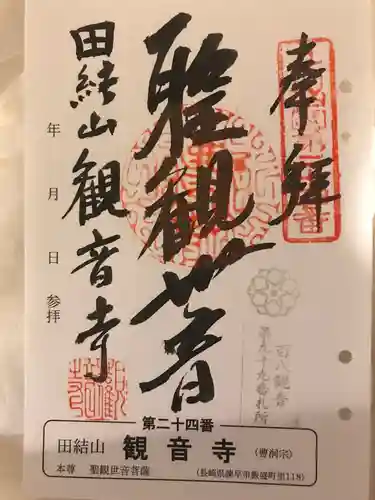 奉拝
聖観世音
田結山観音寺
年 月 日 参拝
百八観音
第二十四番
田結山 観音寺 (曹洞宗)
本尊 聖観世音菩薩 (長崎県諫早市飯盛町里118)